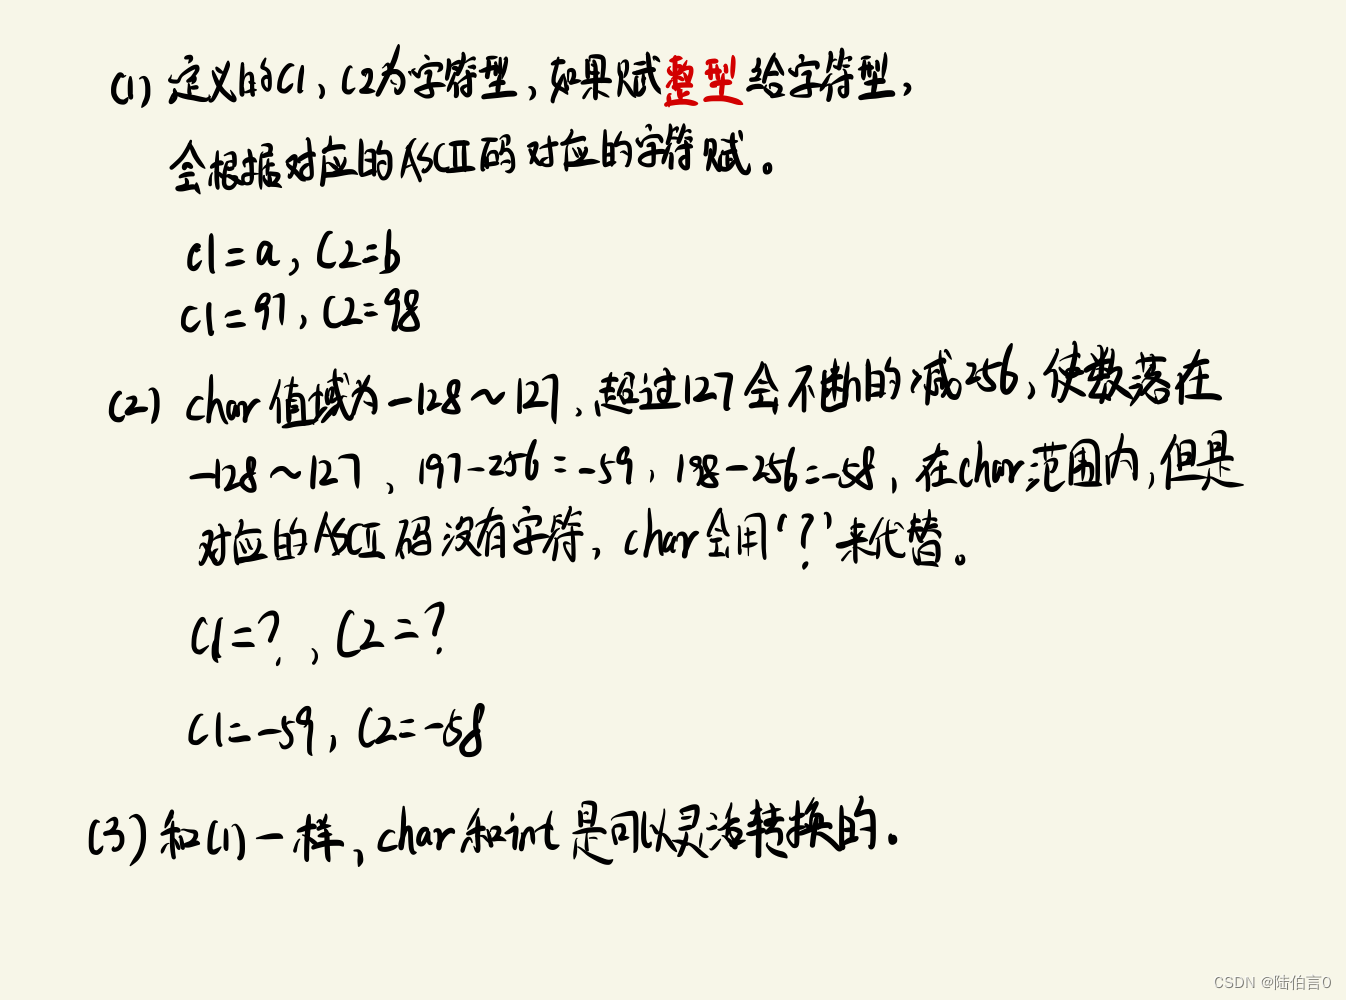 (1) 定义的C1,C2为字符型,如果赋整型给字符型,
会根据对应的ASCII码对应的字符赋。
c1=a,C2=b
c1=97,C2=98
(2) char值域为-128~127,超过127会不断的减256,使数落在
-128~127、197-256=-59,198-256=-58,在char范围内,但是
对应的ASCII码没有字符,char会用'?'来代替。
C1=?,C2=?
C1=-59,C2=-58
(3)和(1)一样,char和int是可以灵活转换的.
CSDN @陆伯言0